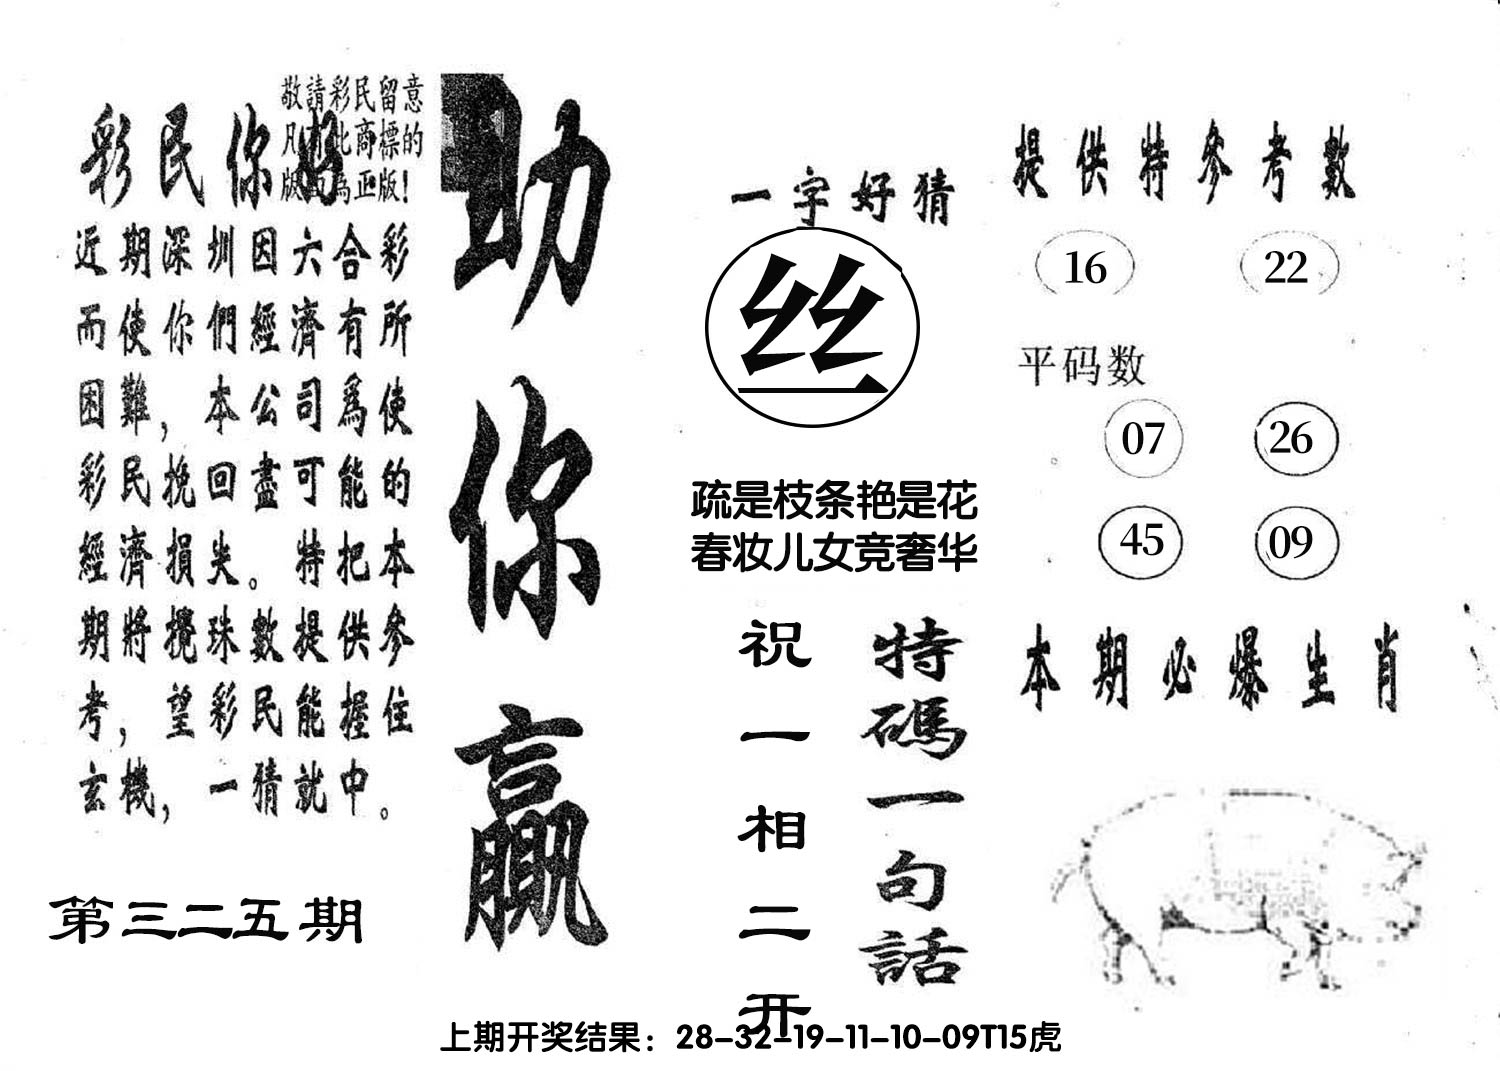 敬請彩民留意
凡有此商標的
版面為正版!
彩民你好
近期深圳因六合彩
而使你們經濟有所
困難，本公司爲使
彩民挽回盡可能的
經濟損失。特把本
期將攪珠數提供參
考，望彩民能握住
玄機，一猜就中。
第三二五期
助你贏
一字好猜
丝
疏是枝条艳是花
春妆儿女竞奢华
特碼一句話
祝一相二开
提供特參考數
16 22
平码数
07 26
45 09
本期必爆生肖
上期开奖结果：28-32-19-11-10-09T15虎